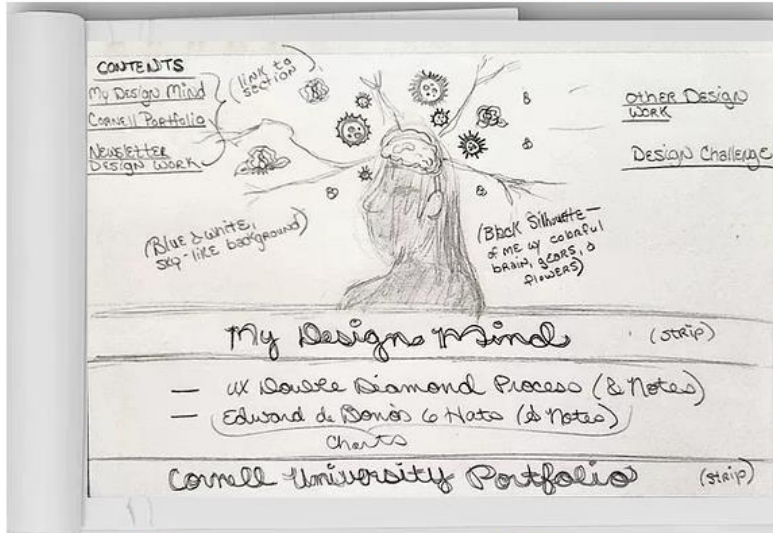 CONTENTS
My Design Mind
Cornell Portfolio
Newsletter
Design Work
(link to
section)
other Design
Work
Design Challenge
(Blue & white,
sky-like background)
(Black Silhouette —
of me w/ colorful
brain, gears, &
flowers)
My Design Mind
(strip)
— UX Double Diamond Process (& Notes)
— Edward de Bono's 6 Hats (& Notes)
Charts
Cornell University Portfolio
(strip)